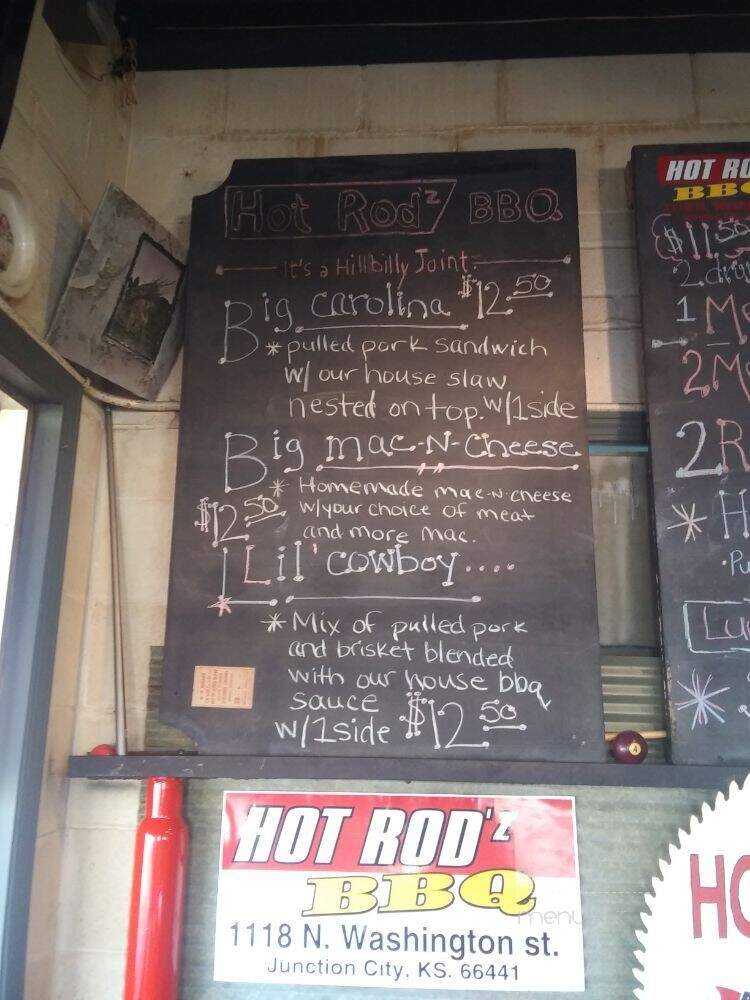 Hot Rod'z BBQ
It's a Hillbilly Joint
Big Carolina $12.50
* pulled pork sandwich
w/ our house slaw
nested on top. w/1side
Big mac-N-Cheese
* Homemade mac-N-cheese
$12.50 w/your choice of meat
and more mac.
Lil' cowboy....
* Mix of pulled pork
and brisket blended
with our house bbq
sauce
w/1side $12.50
HOT RO
BB
$11.50
2
1 M
2 M
2 R
* H
Lu
*
HOT ROD'z
BBQ
menu
1118 N. Washington st.
Junction City, KS. 66441
HO
4